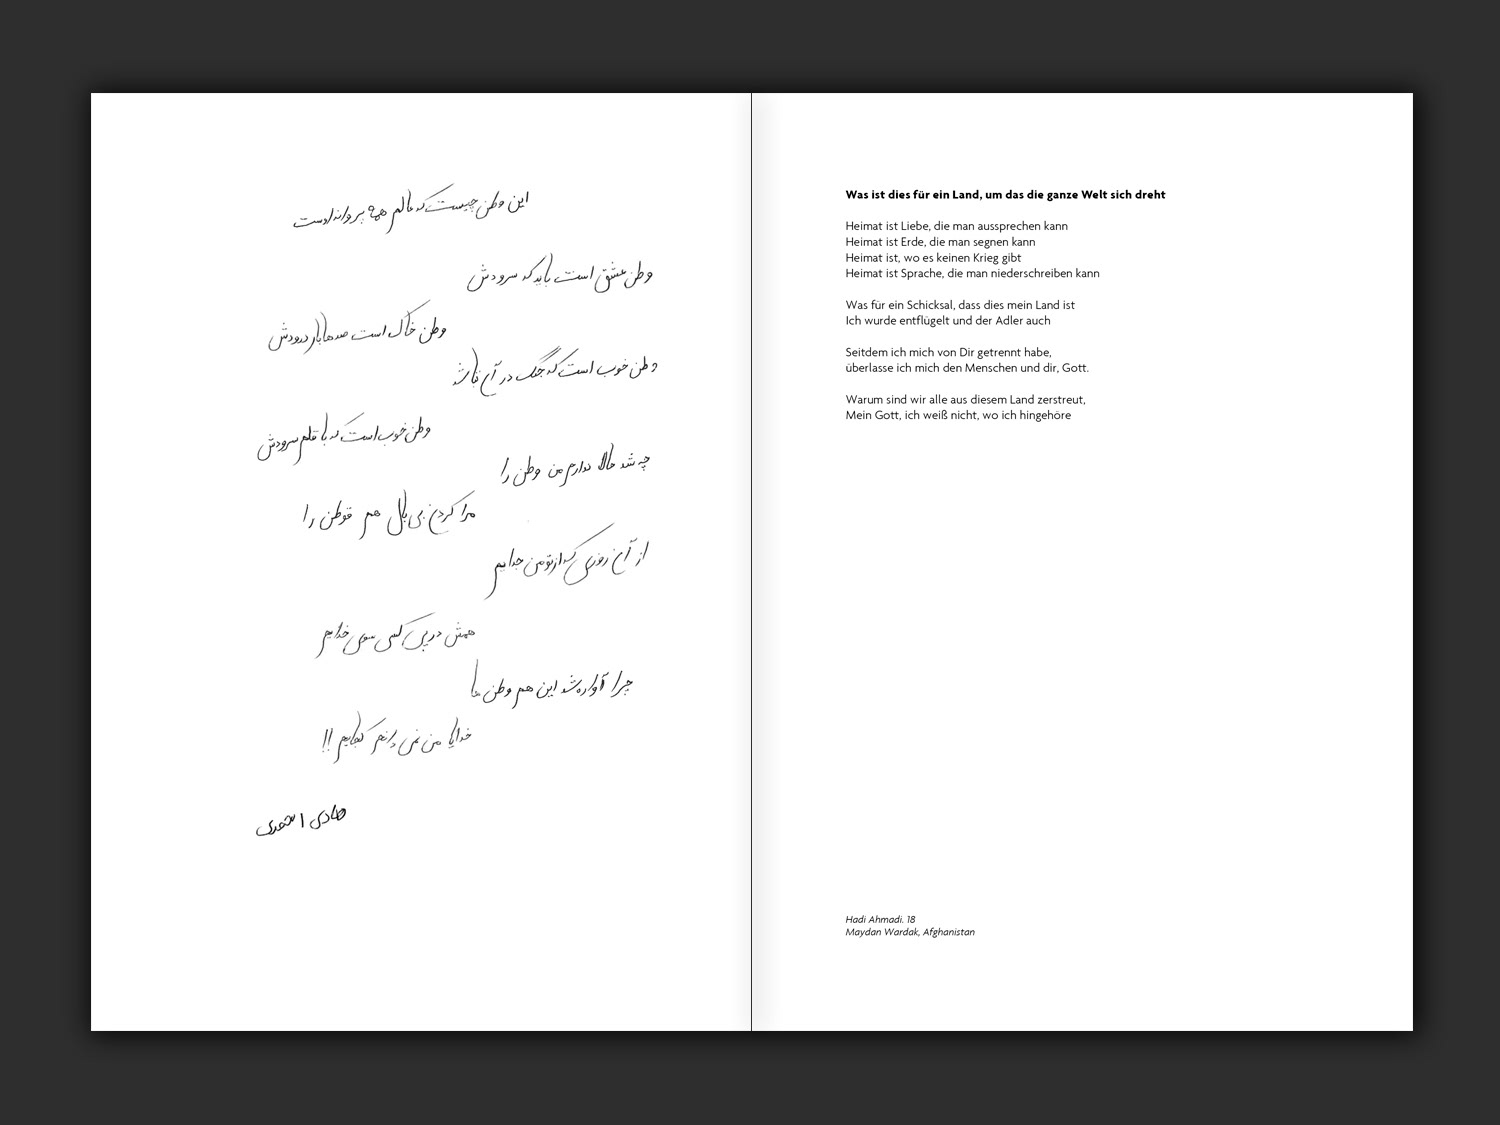 این وطن چیست که عالم همه پروانه اوست
وطن عشق است باید که سرودش
وطن خاک است صدها بار درودش
وطن خوب است که جنگ در آن نباشد
وطن خوب است که با قلم سرودش
چه شد حالا ندارم من وطن را
مرا کردن بی بال هم قو وطن را
از آن روزی که از تو من جدایم
همش در پی کسی سوی خدایم
چرا آواره شد این هم وطن ها
خدایا من نمی دانم کجایم !!
هادی احمدی
Was ist dies für ein Land, um das die ganze Welt sich dreht
Heimat ist Liebe, die man aussprechen kann
Heimat ist Erde, die man segnen kann
Heimat ist, wo es keinen Krieg gibt
Heimat ist Sprache, die man niederschreiben kann
Was für ein Schicksal, dass dies mein Land ist
Ich wurde entflügelt und der Adler auch
Seitdem ich mich von Dir getrennt habe,
überlasse ich mich den Menschen und dir, Gott.
Warum sind wir alle aus diesem Land zerstreut,
Mein Gott, ich weiß nicht, wo ich hingehöre
Hadi Ahmadi. 18
Maydan Wardak, Afghanistan